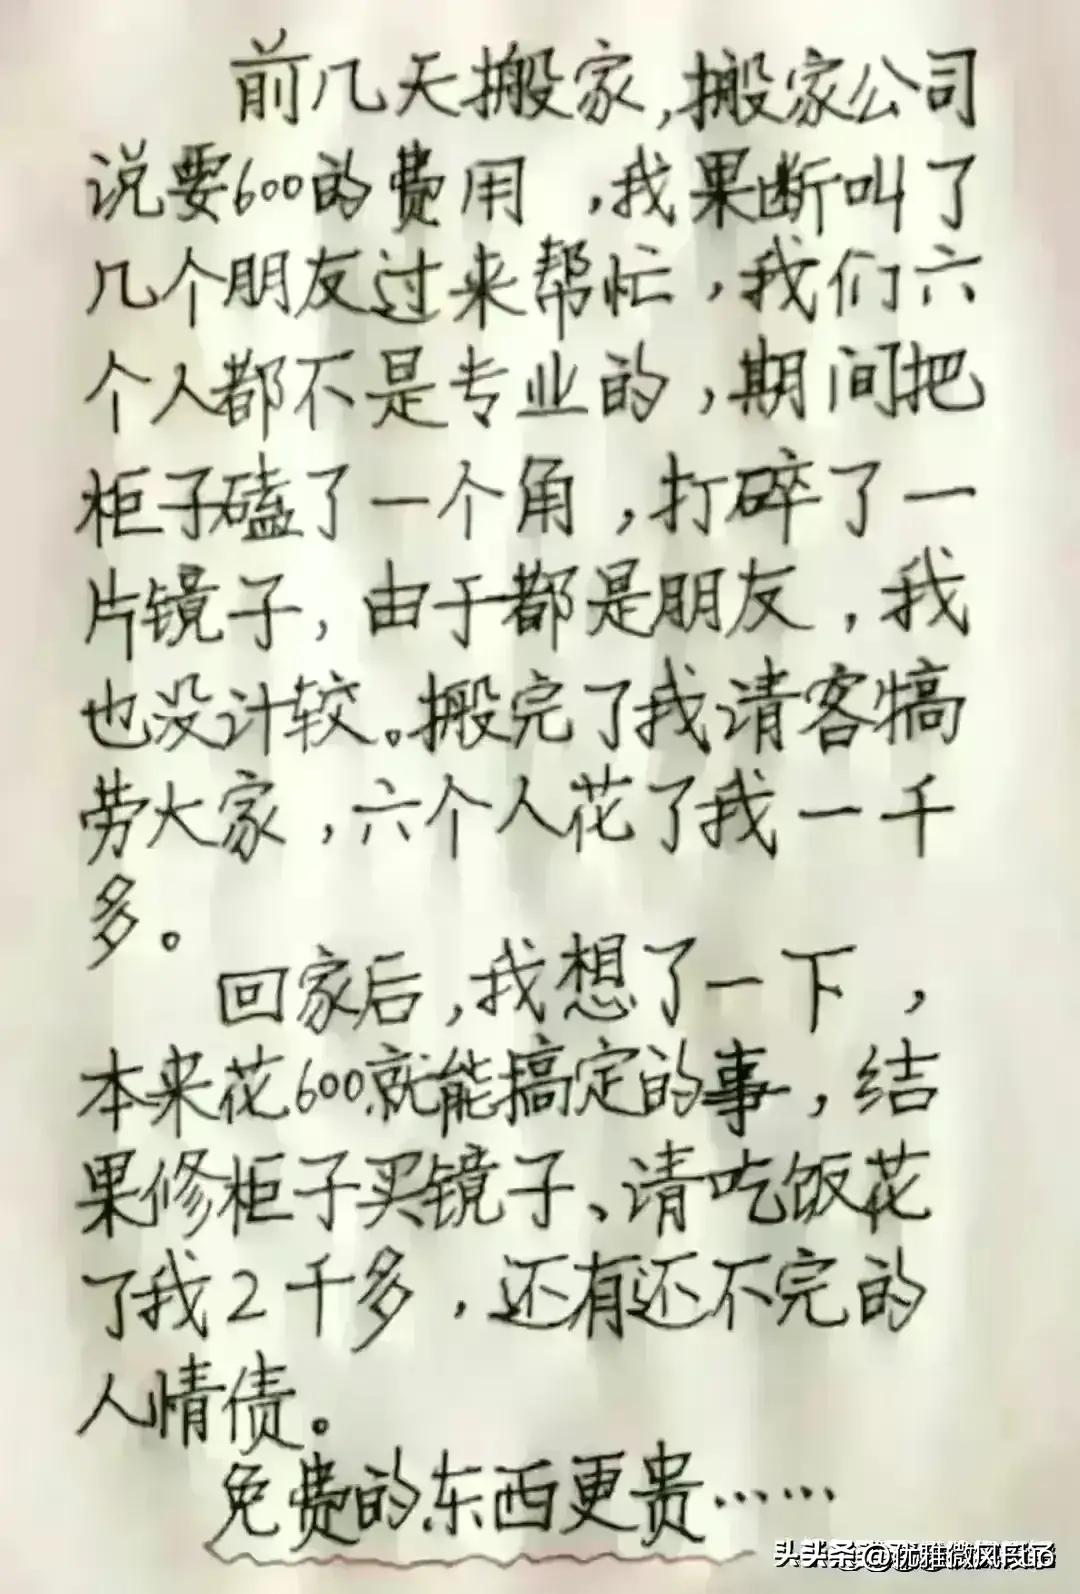 前几天搬家,搬家公司
说要600的费用,我果断叫了
几个朋友过来帮忙,我们六
个人都不是专业的,期间把
柜子磕了一个角,打碎了一
片镜子,由于都是朋友,我
也没计较。搬完了我请客犒
劳大家,六个人花了我一千
多。
回家后,我想了一下,
本来花600就能搞定的事,结
果修柜子买镜子、请吃饭花
了我2千多,还有还不完的
人情债。
免费的东西更贵……
@优雅微风